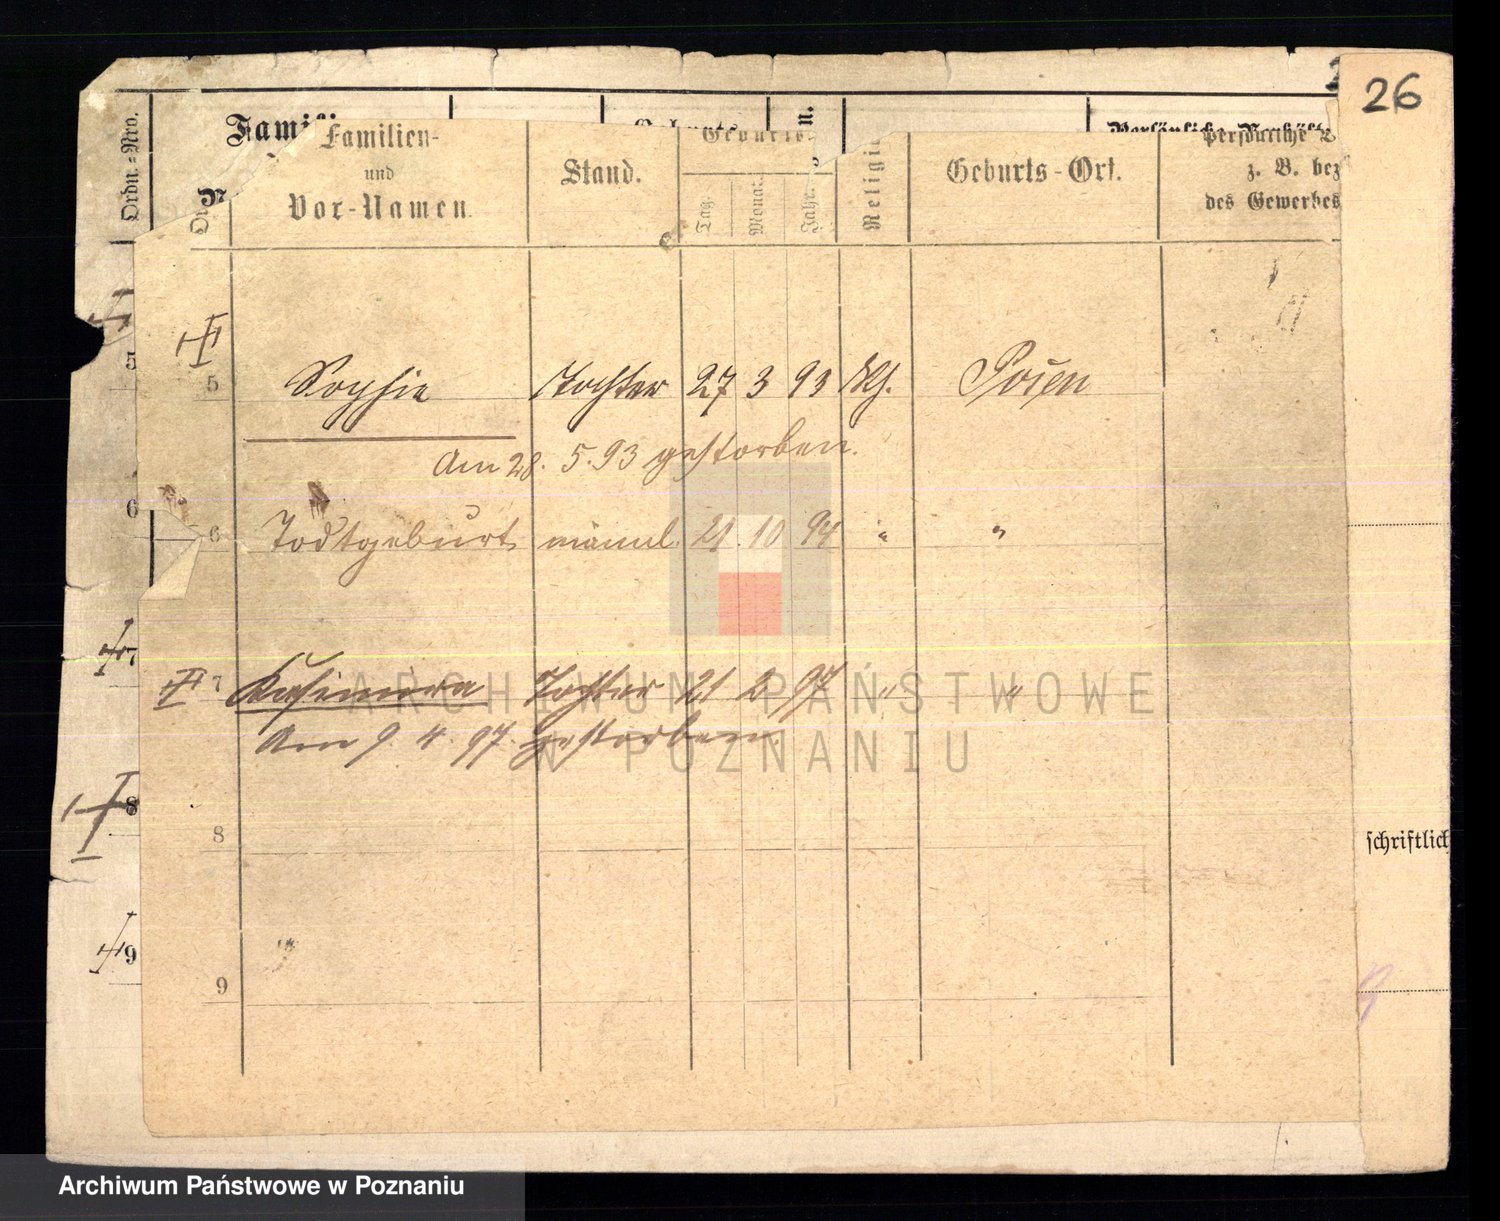 26
Ordn.-Nro.
Familien-
und
Vor-Namen.
Stand.
Geburts-
Tag.
Monat.
Jahr.
Religi
Geburts-Ort.
z. B. bez
des Gewerbes
5
5 Sophie Tochter 27 3 93 kth. Posen
Am 28. 5. 93 gestorben.
6
6 Todtgeburt männl. 21. 10 94 " "
7
7 Kasimira Tochter 21 2 97 " "
Am 9. 4. 97. gestorben.
8
8
schriftlich
9
9
ARCHIWUM PAŃSTWOWE
W POZNANIU
Archiwum Państwowe w Poznaniu